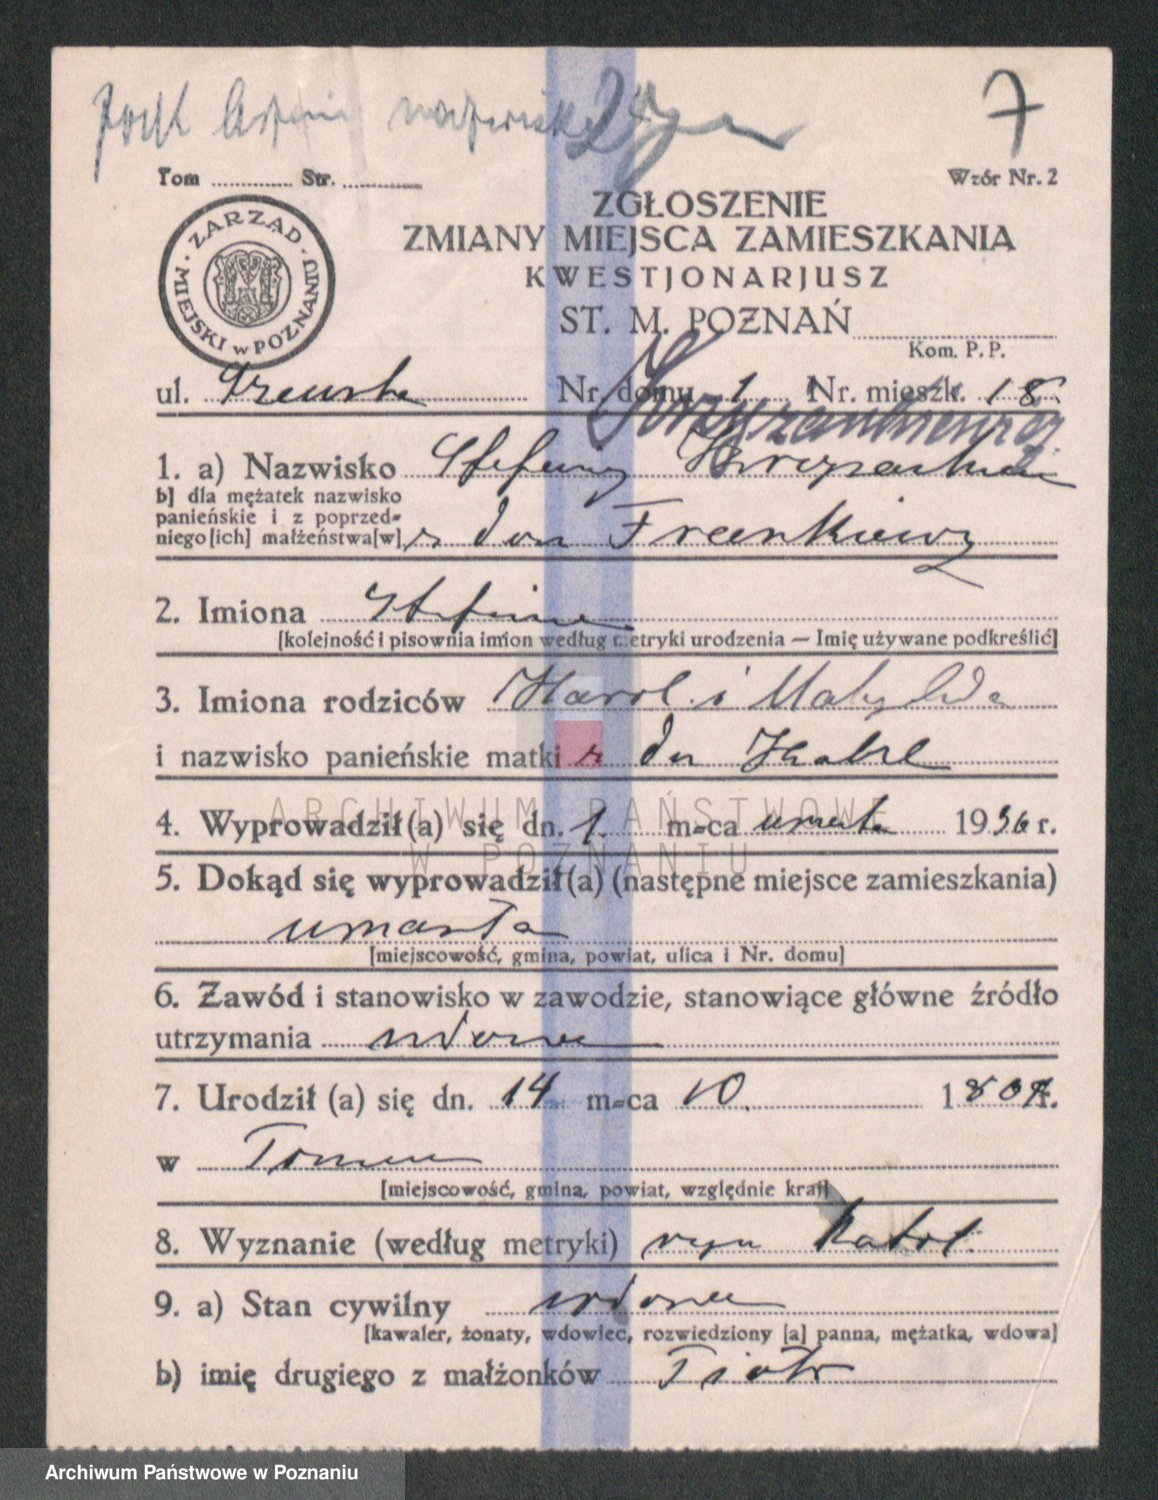 7
Tom Str. Wzór Nr. 2
ZGŁOSZENIE
ZMIANY MIEJSCA ZAMIESZKANIA
KWESTJONARJUSZ
ZARZĄD MIEJSKI w POZNANIU
ST. M. POZNAŃ
Kom. P. P.
ul. Nr. domu 1 Nr. mieszk. 18
1. a) Nazwisko
b] dla mężatek nazwisko
panieńskie i z poprzed-
niego[ich] małżeństwa[w] z dom Frankiewicz
2. Imiona
[kolejność i pisownia imion według metryki urodzenia — Imię używane podkreślić]
3. Imiona rodziców Karol i Matylda
i nazwisko panieńskie matki z do
4. Wyprowadził(a) się dn. 1. m-ca 1936 r.
ARCHIWUM PAŃSTWOWE
W POZNANIU
5. Dokąd się wyprowadził(a) (następne miejsce zamieszkania)
umarła
[miejscowość, gmina, powiat, ulica i Nr. domu]
6. Zawód i stanowisko w zawodzie, stanowiące główne źródło
utrzymania wdowa
7. Urodził (a) się dn. 14 m-ca 10. 1
w
[miejscowość, gmina, powiat, względnie kraj]
8. Wyznanie (według metryki) rzym katol.
9. a) Stan cywilny wdowa
[kawaler, żonaty, wdowiec, rozwiedziony [a] panna, mężatka, wdowa]
b) imię drugiego z małżonków Piotr
Archiwum Państwowe w Poznaniu